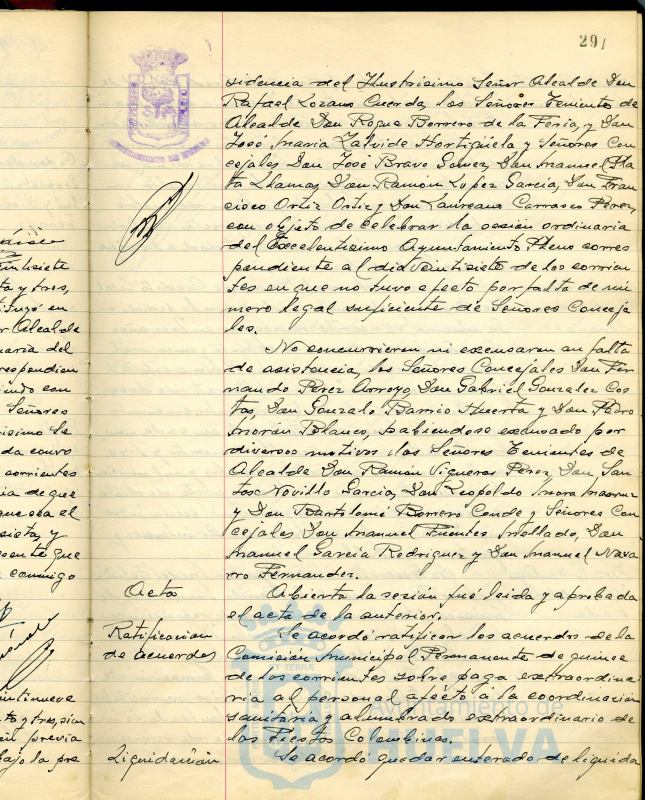 291
sidencia del Ilustrisimo Señor Alcalde Don
Rafael Lozano Cuerda, los Señores Tenientes de
Alcalde Don Roque Borrero de la Feria, y Don
José Maria Zalvide Hortigüela y Señores Con
cejales Don José Bravo Gomez, Don Manuel Pla
ta Llamas, Don Ramón Lopez García, Don Fran
cisco Ortiz Ortiz y Don Laureano Carrasco Perez,
con objeto de celebrar la sesión ordinaria
del Excelentisimo Ayuntamiento Pleno corres
pondiente al dia veintisiete de los corrien
tes en que no tuvo efecto por falta de nú
mero legal suficiente de Señores Conceja
les.
No concurrieron ni excusaron su falta
de asistencia, los Señores Concejales Don Fer
nando Perez Arroyo, Don Gabriel Gonzalez Cos
tas, Don Gonzalo Barrio Huerta y Don Pedro
Morán Blanco, habiendose excusado por
diversos motivos los Señores Tenientes de
Alcalde Don Ramón Vigueras Perez, Don San
tos Novillo García, Don Leopoldo Mora
y Don Bartolomé Borrero Conde y Señores Con
cejales Don Manuel Fuentes Mellado, Don
Manuel García Rodriguez y Don Manuel Nava
rro Fernandez.
Acta
Abierta la sesión fué leida y aprobada
el acta de la anterior.
Ratificacion
de acuerdos
Se acordó ratificar los acuerdos de la
Comisión Municipal Permanente de quince
de los corrientes sobre paga extraordina
ria al personal afecto a la coordinación
sanitaria y alumbrado extraordinario de
las Fiestas Colombinas.
Liquidación
Se acordó quedar enterado de liquida
Ayuntamiento de
HUELVA